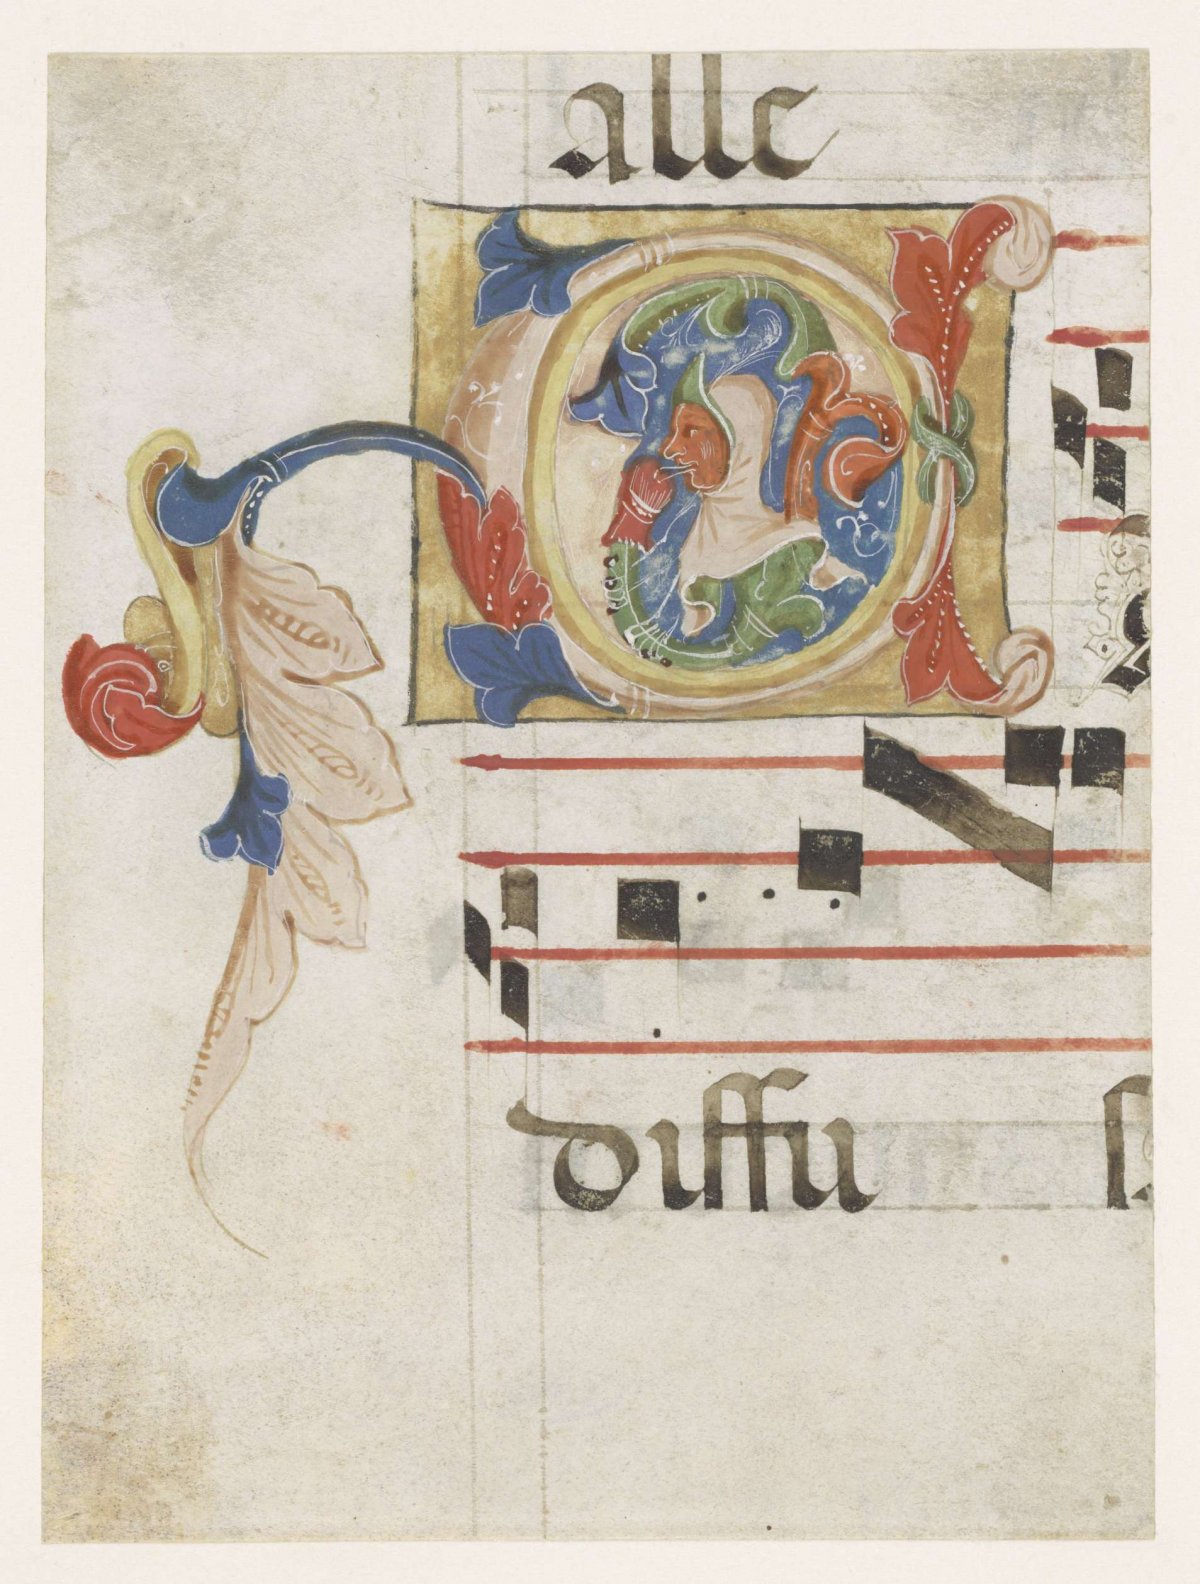 alle
diffu